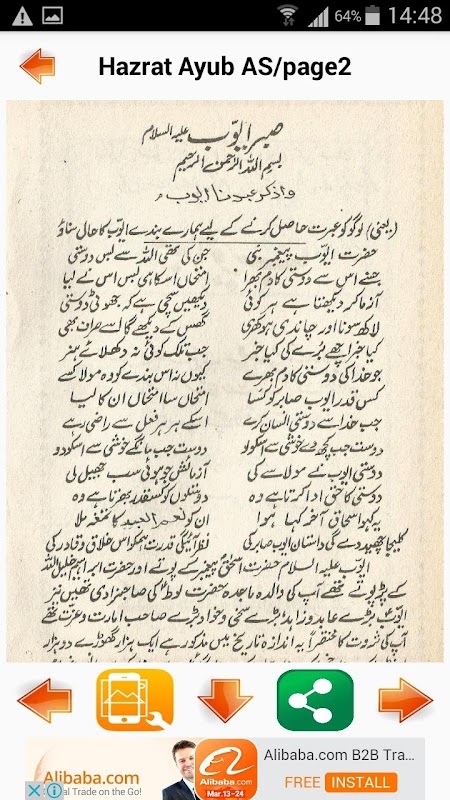 64% 14:48
Hazrat Ayub AS/page2
صبر ایوّب علیہ السلام
بسم اللہ الرحمن الرحیم
واذکر عبدنا ایوب
(یعنی) لوگو کو عبرت حاصل کرنے کے لیے ہمارے بندے ایوّب کا حال سناؤ
حضرت ایوّب پیغمبر نبی جن کی تھی اللہ سے بس دوستی
جسنے اس سے دوستی کا دم بھرا امتحاں اسکا ہی بس اس نے لیا
آزما کر دیکھتا ہے ہر کوئی دیکھیں سچی ہے کہ جھوٹی دوستی
لاکھ سونا اور چاندی ہو کھری گھس کے دیکھے گا اسے صراف بھی
جو خدا کی دوستی کا دم بھرے کیوں نہ اس بندے کو وہ مولا کسے
کس قدر ایوب صابر کو کسا امتحاں سا امتحاں ان کا لیا
جب خدا سے دوستی انساں کرے اسکے ہر ہر فعل سے راضی رہے
دوست جب کچھ دے خوشی سے اسکو لو دوست جب مانگے خوشی سے اسکو دو
دوستی ایوب نے مولا سے کی آزمائش جو ہوئی سب جھیل لی
دوستی کا حق ادا کرتا ہے وہ دوستوں کو سقدر بھرتا ہے وہ
ان کو نعم العبد کا تمغہ ملا
کلیجا چھید دے گی داستان ایوب صابر کی نظر آئیگی قدرت ہمکو اس خلاق و قادر کی
ایوب علیہ السلام حضرت اسحٰق پیغمبر کے پوتے اور حضرت ابراہیم خلیل اللہ
کے پڑپوتے تھے آپ کی والدہ ماجدہ حضرت لوط کی صاحبزادی تھیں نیز
ایوب بڑے عابد و زاہد بڑے سخی و جواد بڑے صاحب امارت و عزت تھے
آپ کی ثروت کا مختصراً یہ اندازہ تاریخ میں مذکور ہے ایک ہزار گھوڑے دو ہزار
Alibaba.com
al Trade on the Go!
Alibaba.com
Mar.13-24
Alibaba.com B2B Tra...
FREE INSTALL